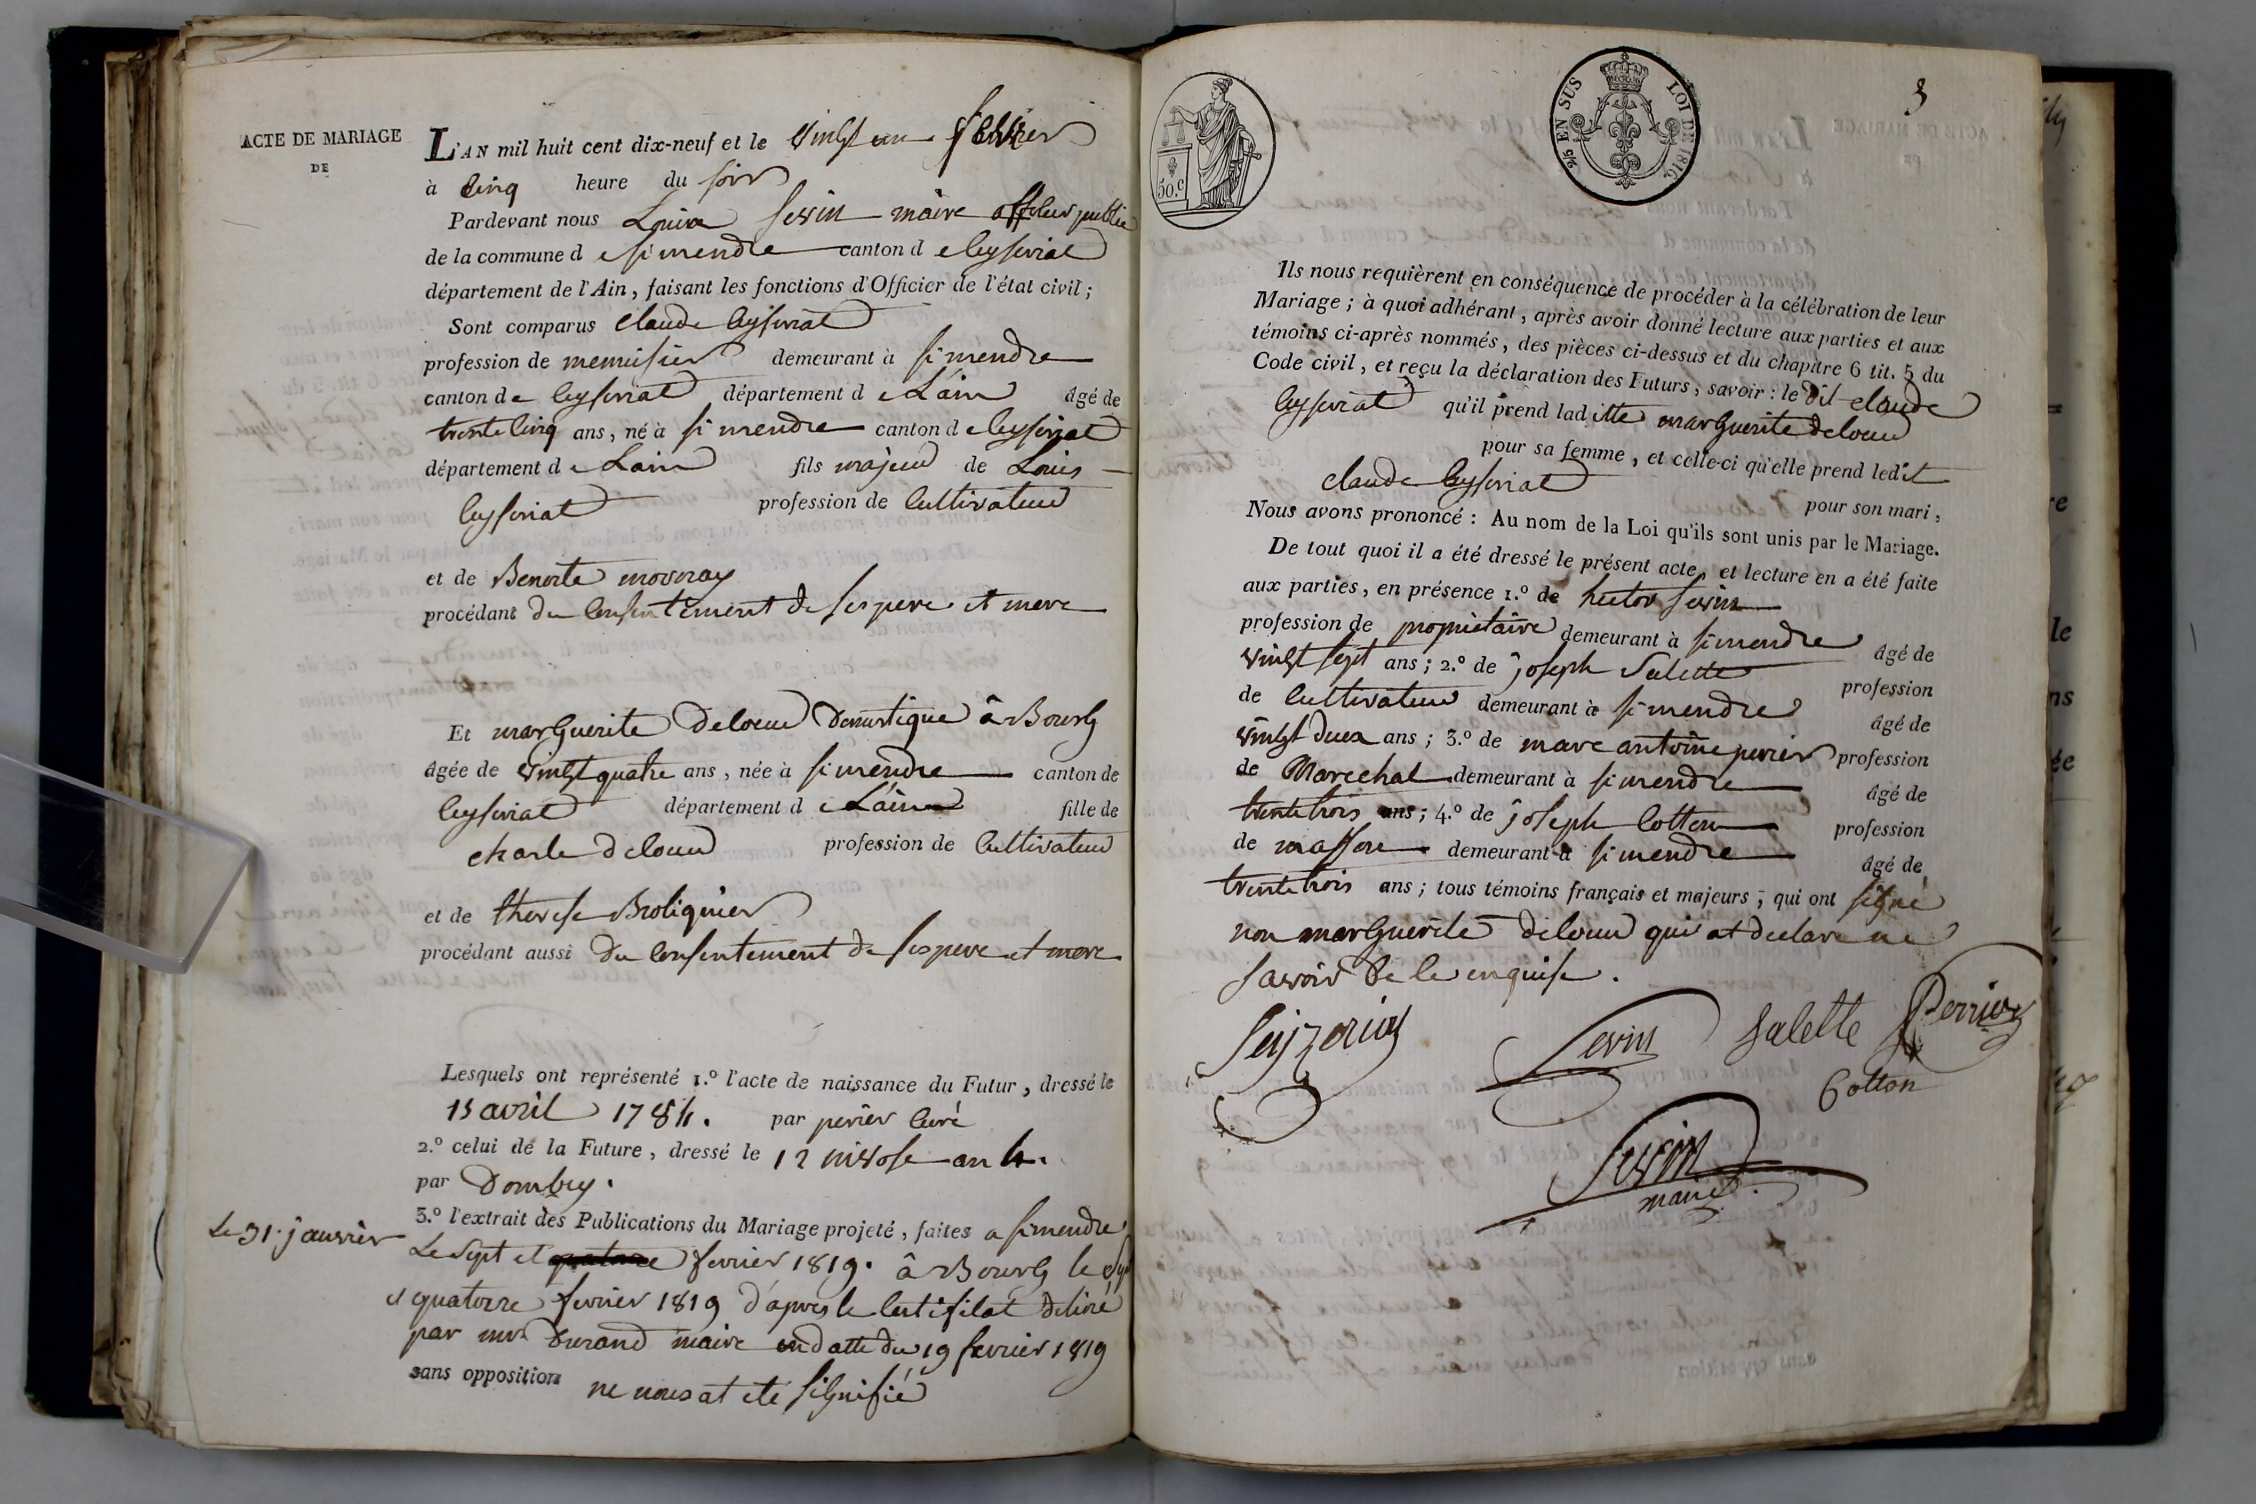 ACTE DE MARIAGE
DE
L'AN mil huit cent dix-neuf et le vingt un fevrier
à cinq heure du soir
Pardevant nous Louis Sevin maire officier public
de la commune de simendre canton de Ceyseriat
département de l'Ain, faisant les fonctions d'Officier de l'état civil;
Sont comparus claude Ceyseriat
profession de menuisier demeurant à simendre
canton de Ceyseriat département de L'ain âgé de
trente cinq ans, né à simendre canton de Ceyseriat
département de Lain fils majeur de Louis
Ceyseriat profession de Cultivateur
et de Benoite
procédant du consentement de ses pere et mere
Et marguerite Deloeur Domestique à Bourg
âgée de vingt quatre ans, née à simendre canton de
Ceyseriat département de L'ain fille de
charle deloeur profession de Cultivateur
et de therese Broliquier
procédant aussi du consentement de ses pere et mere
Lesquels ont représenté 1.º l'acte de naissance du Futur, dressé le
15 avril 1784. par perier curé
2.º celui de la Future, dressé le 12 nivose an 4.
par Dombey.
3.º l'extrait des Publications du Mariage projeté, faites a simendre
Le 31. janvier
Le sept et quatorze fevrier 1819. à Bourg le sept
et quatorze fevrier 1819 d'apres le certificat delivré
par mr Durand maire en datte du 19 fevrier 1819
sans opposition ne nous at ete signifié
50.c
2/5 EN SUS LOI DE 1816.
3
Ils nous requièrent en conséquence de procéder à la célébration de leur
Mariage; à quoi adhérant, après avoir donné lecture aux parties et aux
témoins ci-après nommés, des pièces ci-dessus et du chapitre 6 tit. 5 du
Code civil, et reçu la déclaration des Futurs, savoir: le dit claude
Ceyseriat qu'il prend laditte marguerite deloeur
pour sa femme, et celle-ci qu'elle prend ledit
claude Ceyseriat pour son mari,
Nous avons prononcé: Au nom de la Loi qu'ils sont unis par le Mariage.
De tout quoi il a été dressé le présent acte, et lecture en a été faite
aux parties, en présence 1.º de hector sevin
profession de propriétaire demeurant à simendre âgé de
vingt sept ans; 2.º de joseph Salette profession
de Cultivateur demeurant à simendre âgé de
vingt deux ans; 3.º de marc antoine perier profession
de Marechal demeurant à simendre âgé de
trente trois ans; 4.º de joseph Cotton profession
de masson demeurant à simendre âgé de
trente trois ans; tous témoins français et majeurs, qui ont signé
non marguerite deloeur qui at declare ne
savoir de ce enquise.
Seyzeriat Sevin Salette Perrier
Cotton
Sevin
maire